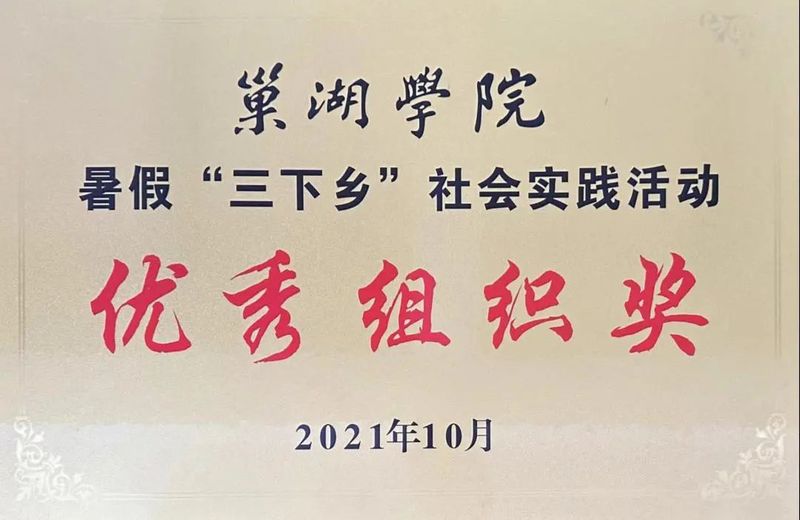 巢湖學院
暑假“三下乡”社会实践活动
优秀组织奖
2021年10月